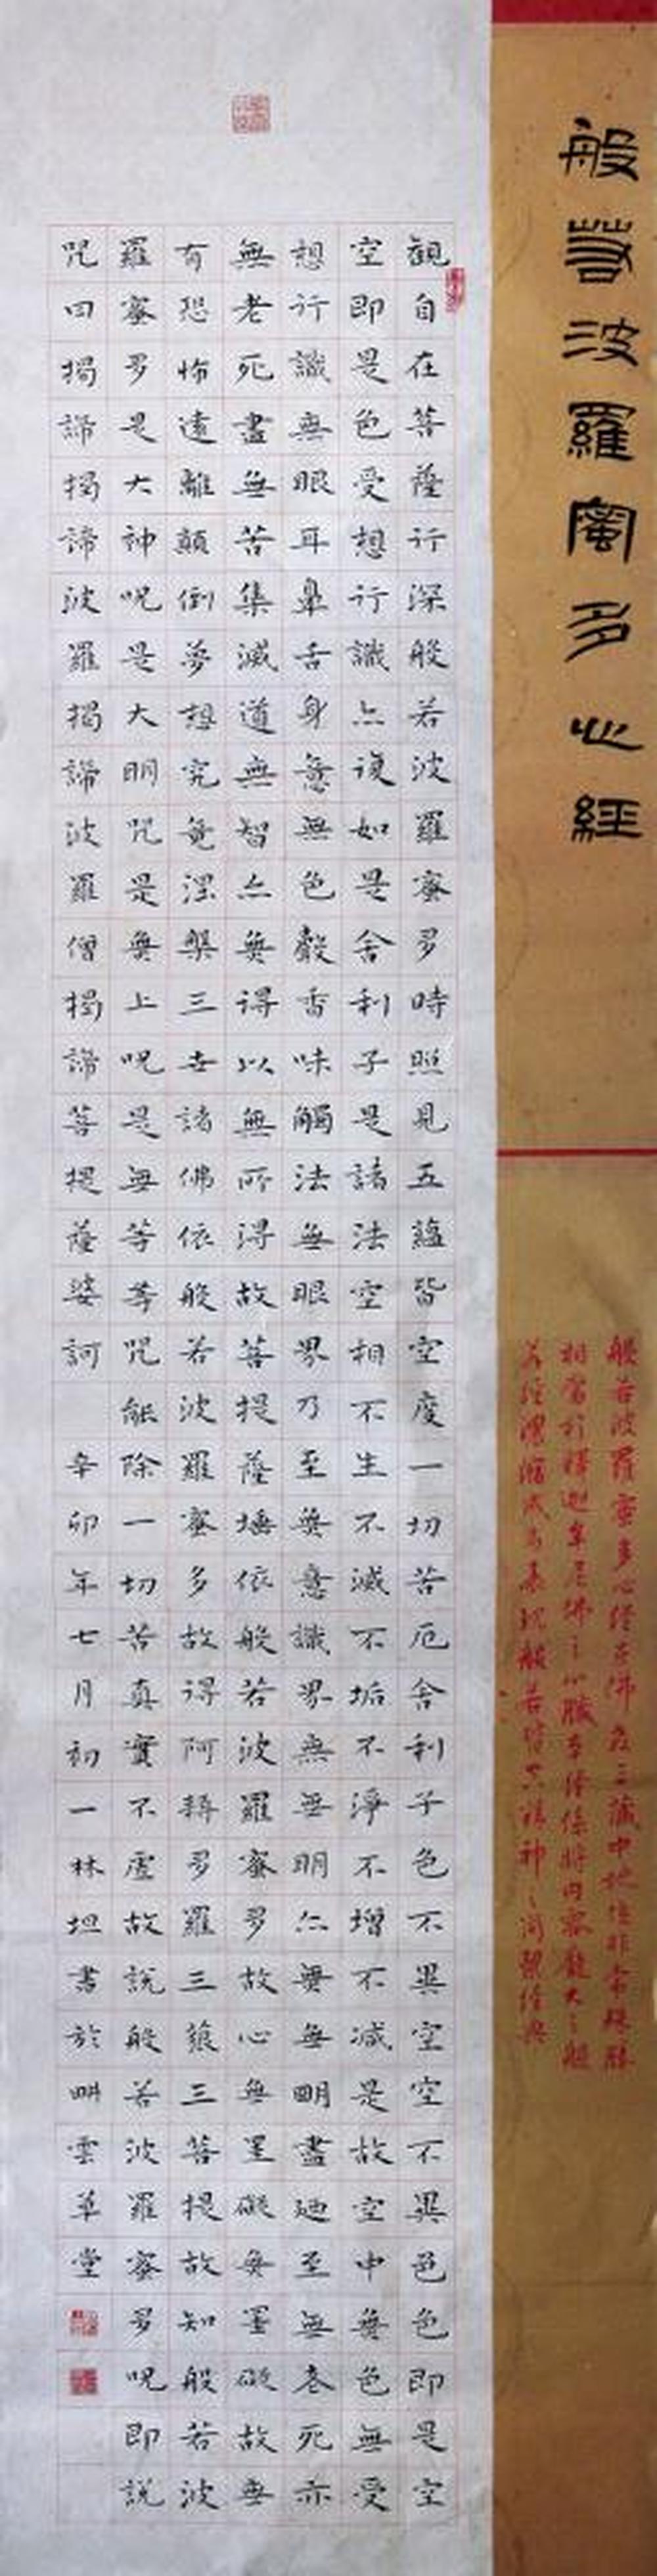 般若波羅蜜多心經
般若波羅蜜多心經在佛教三藏中地位非常殊勝
相當於釋迦牟尼佛之心臟本經係將內容龐大之般
若經濃縮成為表現般若皆空精神之簡潔經典
觀自在菩薩行深般若波羅蜜多時照見五蘊皆空度一切苦厄舍利子色不異空空不異色色即是空
空即是色受想行識亦復如是舍利子是諸法空相不生不滅不垢不淨不增不減是故空中無色無受
想行識無眼耳鼻舌身意無色聲香味觸法無眼界乃至無意識界無無明亦無無明盡廼至無老死亦
無老死盡無苦集滅道無智亦無得以無所得故菩提薩埵依般若波羅蜜多故心無罣礙無罣礙故無
有恐怖遠離顛倒夢想究竟涅槃三世諸佛依般若波羅蜜多故得阿耨多羅三藐三菩提故知般若波
羅蜜多是大神呪是大明咒是無上呪是無等等咒能除一切苦真實不虛故說般若波羅蜜多呪即說
咒曰揭諦揭諦波羅揭諦波羅僧揭諦菩提薩婆訶 辛卯年七月初一林坦書於畊雲草堂